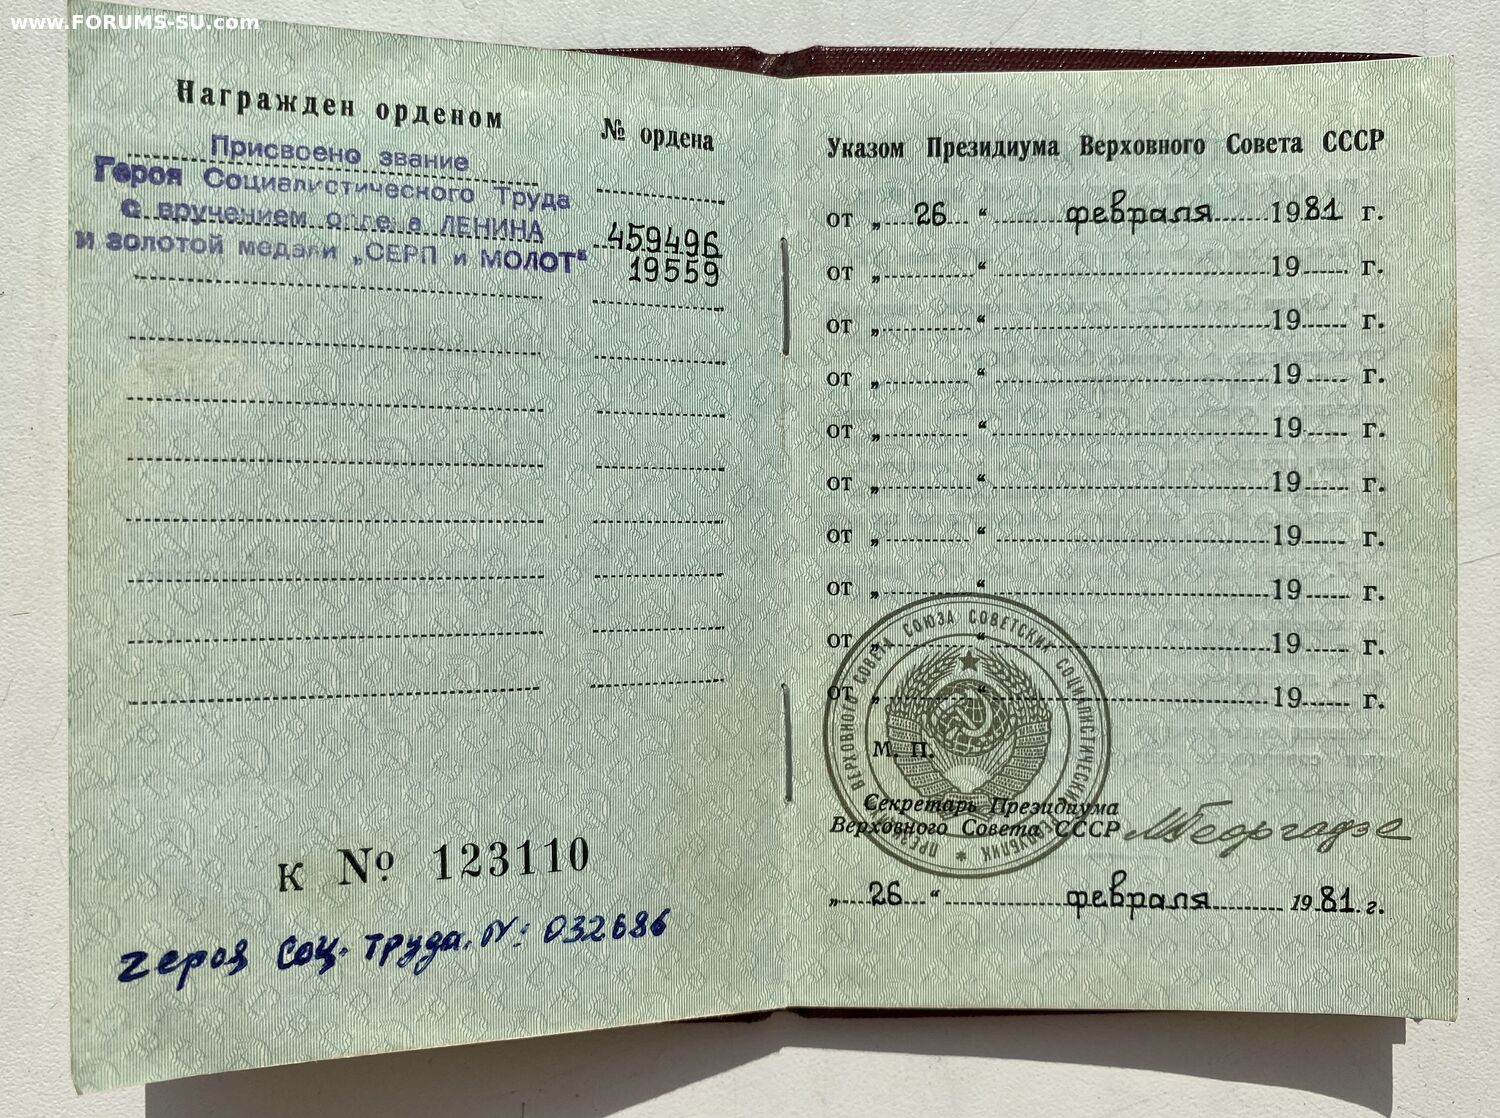 www.FORUMS-SU.com
Награжден орденом
№ ордена
Присвоено звание
Героя Социалистического Труда
с вручением ордена ЛЕНИНА 459496
и золотой медали „СЕРП и МОЛОТ“ 19559
К № 123110
героя Соц. труда. N: 032686
Указом Президиума Верховного Совета СССР
от „ 26 “ февраля 1981 г.
от „ “ 19 г.
от „ “ 19 г.
от „ “ 19 г.
от „ “ 19 г.
от „ “ 19 г.
от „ “ 19 г.
от „ “ 19 г.
от „ “ 19 г.
от „ “ 19 г.
ВЕРХОВНОГО СОВЕТА СОЮЗА СОВЕТСКИХ СОЦИАЛИСТИЧЕСКИХ
М. П.
Секретарь Президиума
Верховного Совета СССР МГеоргадзе
„ 26 “ февраля 1981 г.